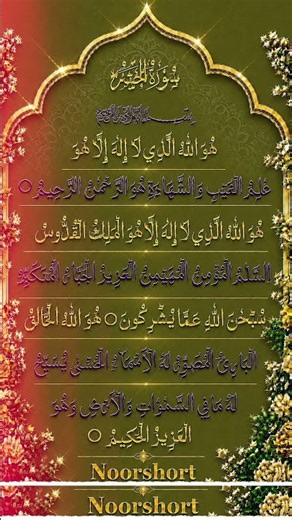 سُوْرَةُ الْحَشْرِ
بِسْمِ اللهِ الرَّحْمٰنِ الرَّحِيْمِ
هُوَ اللهُ الَّذِي لَا إِلٰهَ إِلَّا هُوَ
عٰلِمُ الْغَيْبِ وَالشَّهَادَةِ هُوَ الرَّحْمٰنُ الرَّحِيْمُ ○
هُوَ اللهُ الَّذِي لَا إِلٰهَ إِلَّا هُوَ الْمَلِكُ الْقُدُّوْسُ
السَّلٰمُ الْمُؤْمِنُ الْمُهَيْمِنُ الْعَزِيْزُ الْجَبَّارُ الْمُتَكَبِّرُ
سُبْحٰنَ اللهِ عَمَّا يُشْرِكُوْنَ ○ هُوَ اللهُ الْخَالِقُ
الْبَارِئُ الْمُصَوِّرُ لَهُ الْأَسْمَاءُ الْحُسْنٰى يُسَبِّحُ
لَهُ مَا فِي السَّمٰوَاتِ وَالْأَرْضِ وَهُوَ
الْعَزِيْزُ الْحَكِيْمُ ○
Noorshort
Noorshort